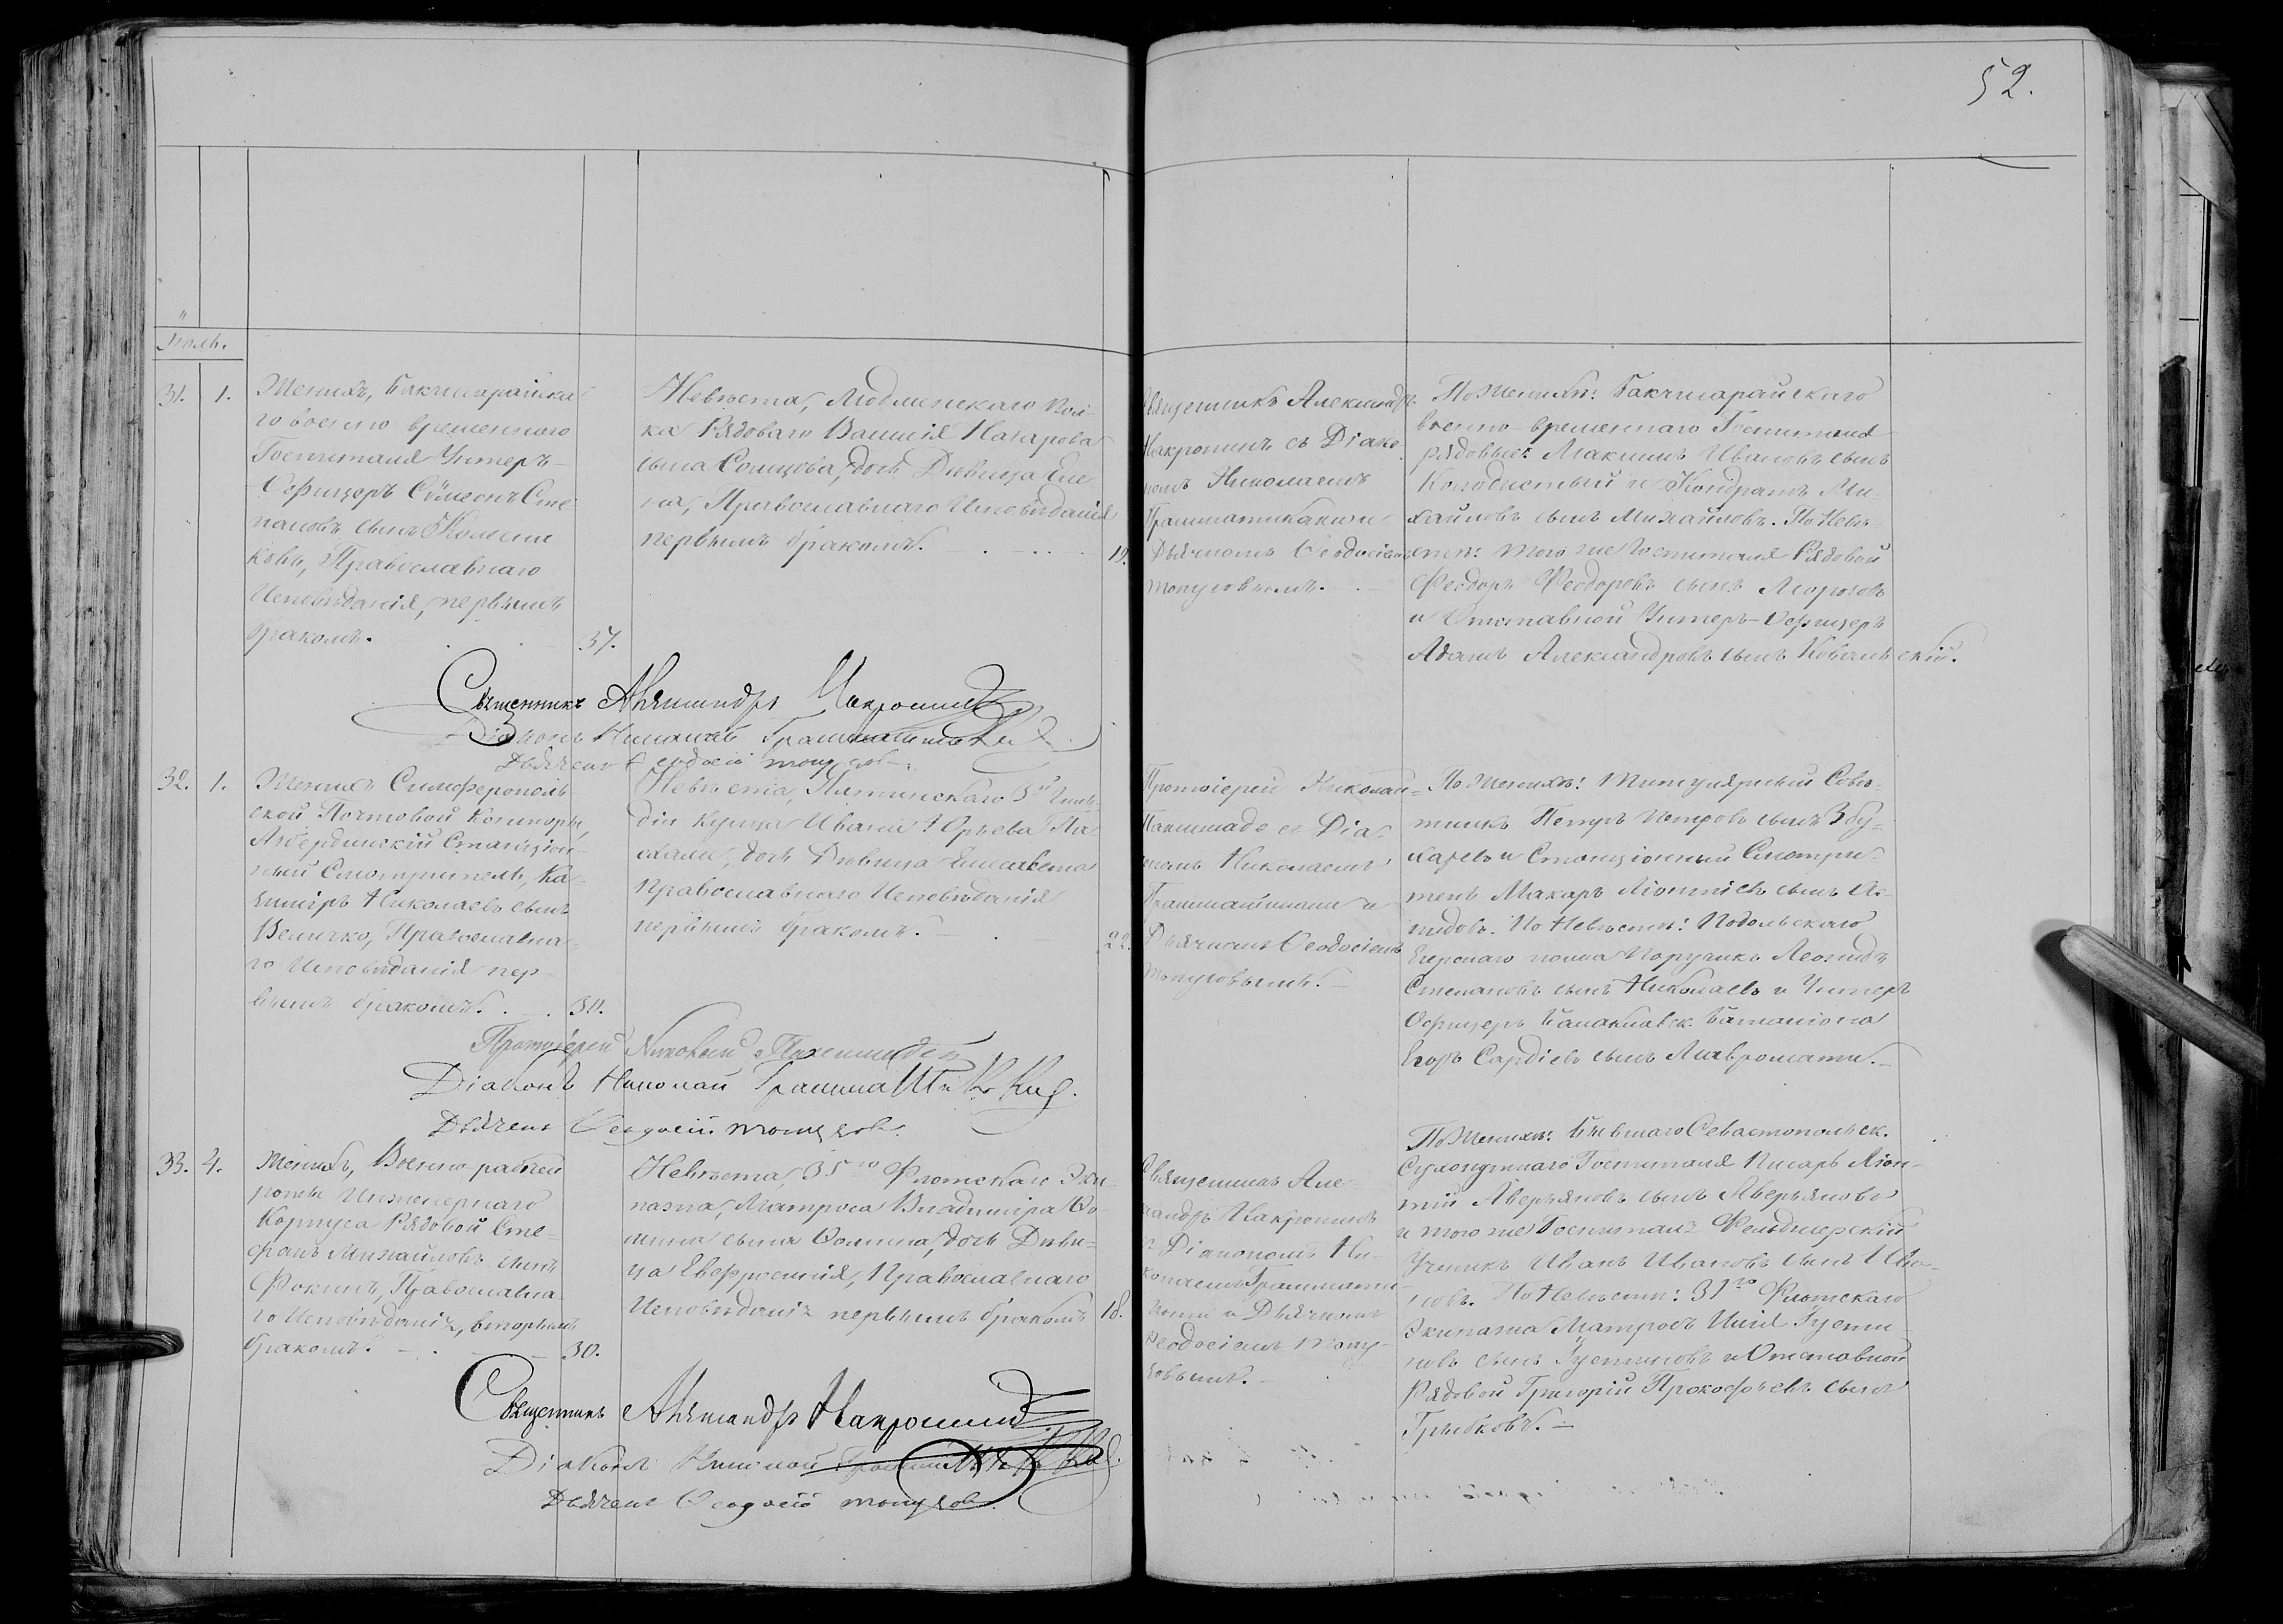 52.
Іюль.
31. 1.
Женихъ, Бакчисарайска
го военно временнаго
Госпиталя Унтеръ-
Офицеръ Сѵмеонъ Сте
пановъ сынъ Колесни
ковъ, Православнаго
Исповѣданія, первымъ
бракомъ. 37.
Невѣста, Люблинскаго Пол-
ка Рядоваго Василія Назарова
сына Солнцова, дочь Дѣвица Еле
на, Православнаго Исповѣданія
первымъ бракомъ. 19.
Священникъ Александръ
Накропинъ съ Діако
номъ Николаемъ
Грамматикакии
Дьячкомъ Ѳеодосіемъ
Топузовымъ.
По Женихѣ: Бакчисарайскаго
военно-временнаго Госпиталя
рядовые: Максимъ Ивановъ сынъ
и Кондратъ Ми-
хайловъ сынъ Михайловъ. По Невѣ-
стѣ: того же Госпиталя Рядовой
Феодоръ Феодоровъ сынъ Морозовъ
и Отставной Унтеръ-Офицеръ
Адамъ Александровъ сынъ Ковалевскій.
Священникъ Александръ Накропинъ
Діаконъ Николай Грамматикаки
Дьячекъ Ѳеодосій Топузовъ
32. 1.
Женихъ Симферополь
ской Почтовой Конторы,
Станціон-
ный Смотритель, Ка-
зиміръ Николаевъ сынъ
Величко, Православна-
го Исповѣданія пер-
вымъ бракомъ. 30.
Невѣста, Ялтинскаго 3й Гиль-
діи Купца Ивана Юрьева Па
схали, дочь Дѣвица Елисавета
Православнаго Исповѣданія
первымъ бракомъ. 22.
Протоіерей Николай
съ Діа-
кономъ Николаемъ
Грамматикаки и
Дьячкомъ Ѳеодосіемъ
Топузовымъ.
По Женихѣ: Титулярный Совѣ-
тникъ Петръ Петровъ сынъ Збу-
каревъ и Станціонный Смотри-
тель Макаръ сынъ
По Невѣстѣ: Подольскаго
Егерскаго полка Поручикъ Леонидъ
Степановъ сынъ Николаевъ и Унтеръ
Офицеръ Балаклавск. Баталіона
Егоръ Сардіевъ сынъ Мавромати.
Протоіерей Николай
Діаконъ Николай Грамматикаки
Дьячекъ Ѳеодосій Топузовъ.
33. 4.
Женихъ, Военно рабочей
роты Инженернаго
Корпуса Рядовой Сте-
фанъ Михайловъ сынъ
Фокинъ, Православна
го Исповѣданія, вторымъ
бракомъ. 30.
Невѣста, 35го Флотскаго Эки-
пажа, Матроса Владиміра Ѳо-
мина сына Ѳомина, дочь Дѣви-
ца Евфросинія, Православнаго
Исповѣданія первымъ бракомъ 18.
Священникъ Але-
ксандръ Накропинъ
съ Діакономъ Ни-
колаемъ Граммати-
каки и Дьячкомъ
Ѳеодосіемъ Топу-
зовымъ.
По Женихѣ: Бывшаго Севастопольск.
Сухопутнаго Госпиталя Писарь Леон-
тій Аверьяновъ сынъ Аверьяновъ
и того же Госпиталя Фельдшерскій
Ученикъ Иванъ Ивановъ сынъ Ива-
новъ. По Невѣстѣ: 31го Флотскаго
Экипажа Матросъ Илія Густи
новъ сынъ Густиновъ и Отставной
Рядовой Григорій Прокофьевъ сынъ
Грибковъ.
Священникъ Александръ Накропинъ
Діаконъ Николай Грамматикаки
Дьячекъ Ѳеодосій Топузовъ.